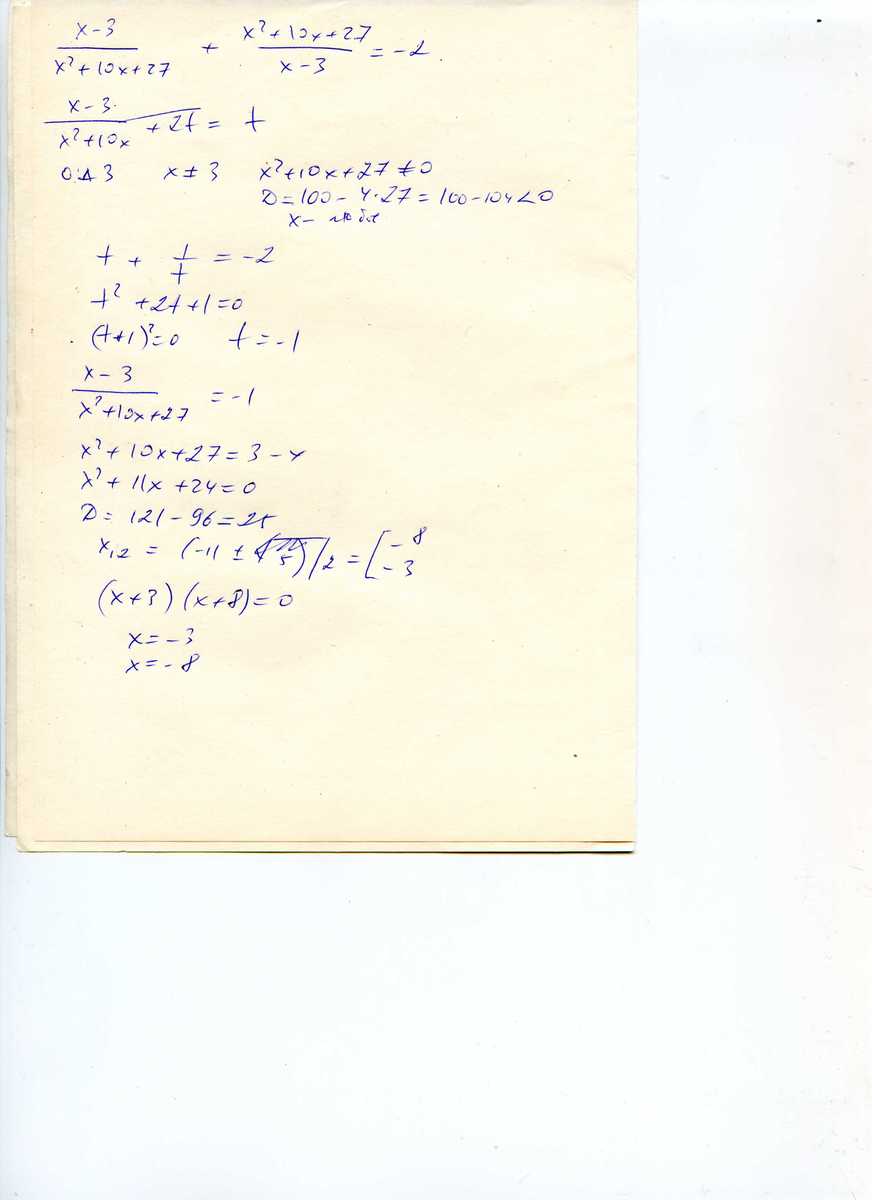 (x-3)/(x²+10x+27) + (x²+10x+27)/(x-3) = -2
(x-3)/(x²+10x) + 27 = t
ОДЗ x ≠ 3 x²+10x+27 ≠ 0
D = 100 - 4·27 = 100 - 104 < 0
x - любое
t + 1/t = -2
t² + 2t + 1 = 0
(t+1)² = 0 t = -1
(x-3)/(x²+10x+27) = -1
x² + 10x + 27 = 3 - x
x² + 11x + 24 = 0
D = 121 - 96 = 25
x₁,₂ = (-11 ± 5)/2 = [-8 -3
(x+3)(x+8) = 0
x = -3
x = -8